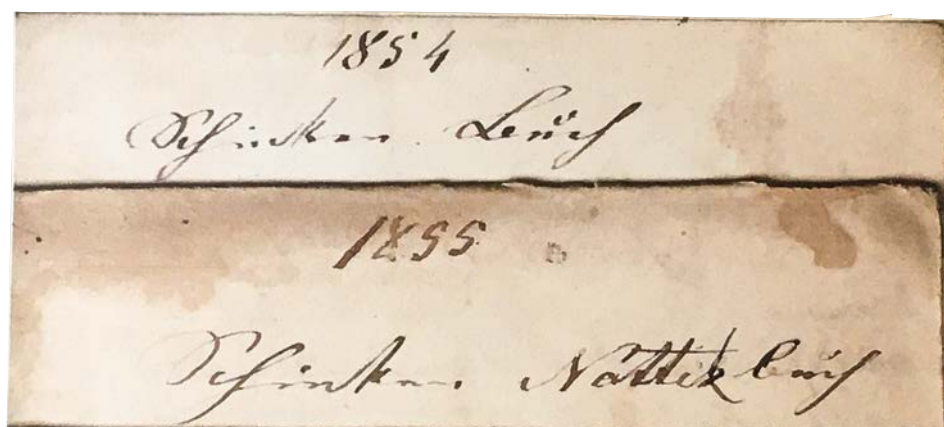 1854
Schinken Buch
1855
Schinken Nottizbuch